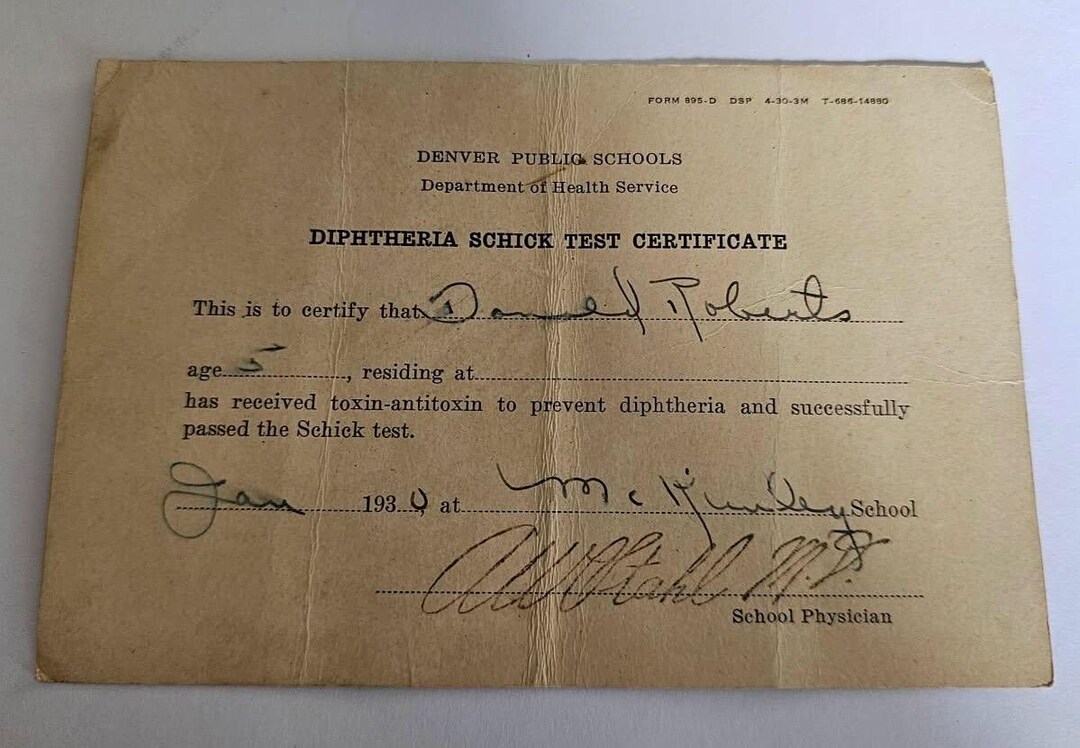 FORM 895-D DSP 4-30-3M T-686-14880
DENVER PUBLIC SCHOOLS
Department of Health Service
DIPHTHERIA SCHICK TEST CERTIFICATE
This is to certify that Donald Roberts
age 5, residing at
has received toxin-antitoxin to prevent diphtheria and successfully
passed the Schick test.
Jan 1930 at McKinley School
Stahl M.D.
School Physician